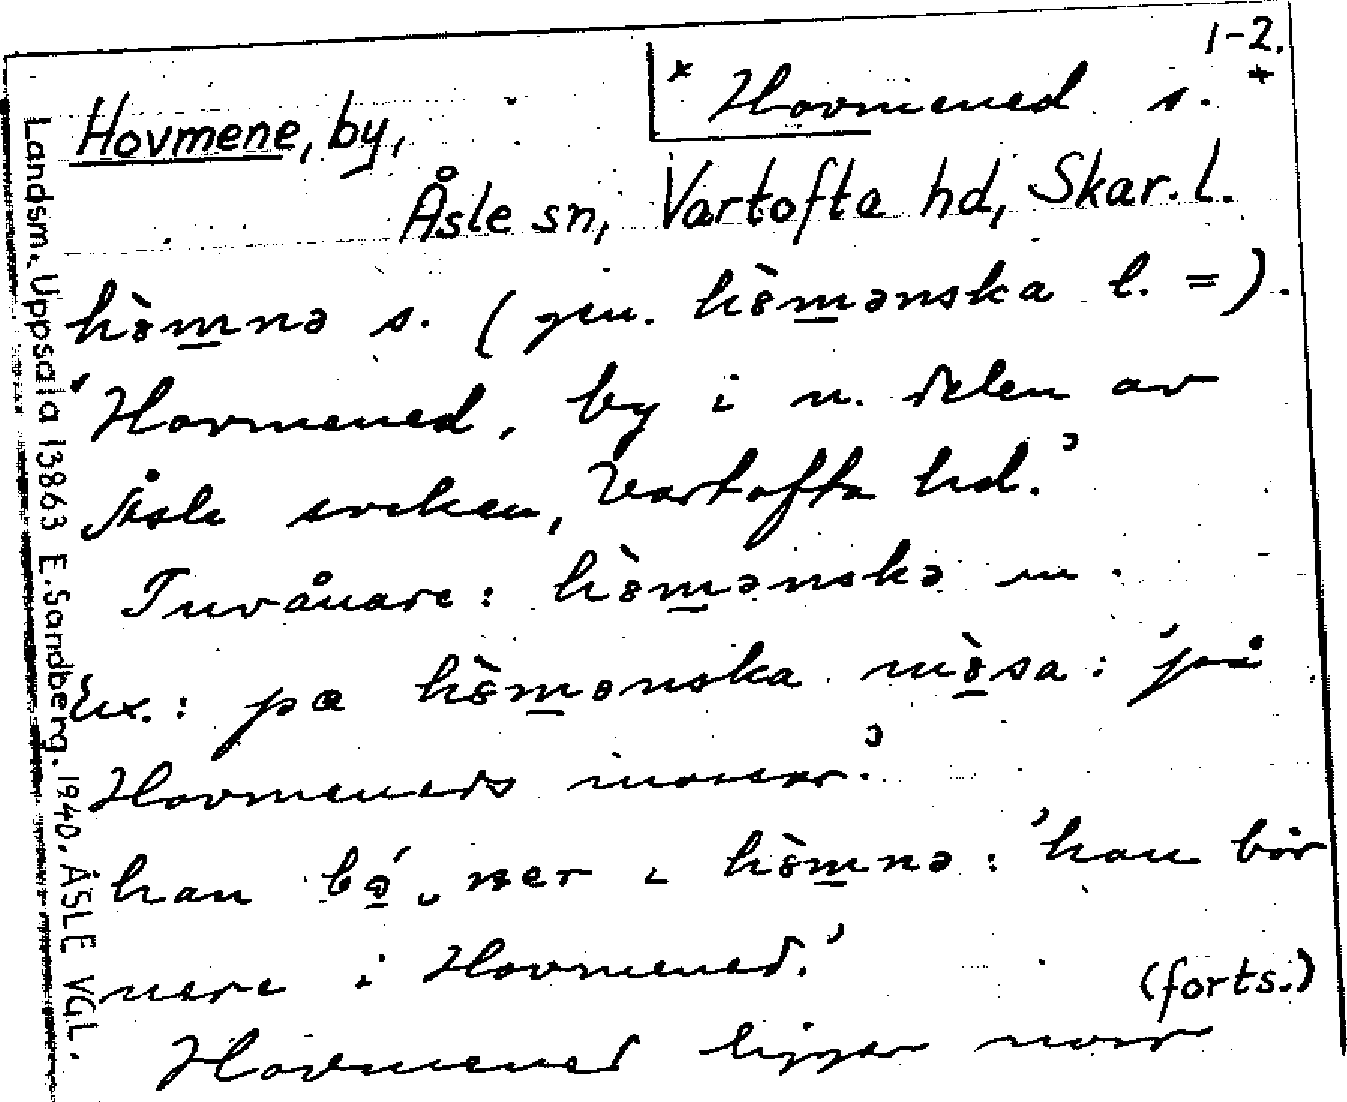 1-2.
* Hovmened s. +
Hovmene, by,
Åsle sn, Vartofta hd, Skar. l.
hòmnə s. (gen. hòmənska l. =).
'Hovmened, by i n. delen av
Åsle socken, Vartofta hd.'
Invånare: hòmənskə m.
Ex.: pa hòmənska mòsa: 'på
Hovmeneds mossar.'
han bó ner i hòmnə: 'han bor
nere i Hovmened.'
(forts.)
Hovmened ligger norr
Landsm. Uppsala 13863 E. Sandberg. 1940. ÅSLE VGL.